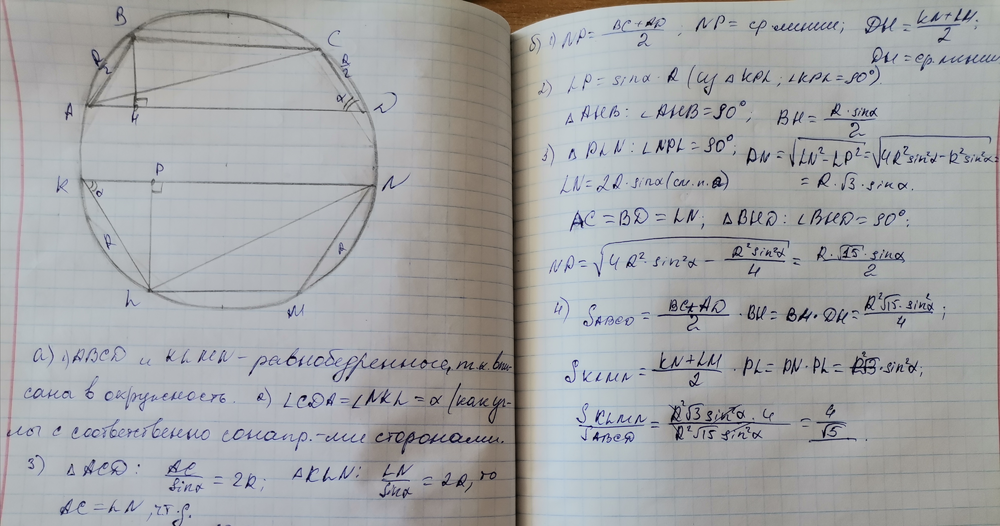 B
C
R/2
R/2
A
H
α
D
K
P
N
α
R
R
L
M
а) 1) ABCD и KLMN - равнобедренное, т.к. впи-
сана в окружность. 2) ∠CDA = ∠NKL = α (как уг-
лы с соответственно сонапр.-ми сторонами.
3) △ACD: AC/sinα = 2R; △KLN: LN/sinα = 2R, то
AC = LN, чт.д.
б) 1) NP = (BC+AD)/2, NP = ср.линии; DH = (KN+LM)/2;
DH = ср.линии
2) LP = sinα·R (из △KPL; ∠KPL = 90°)
△AHB: ∠AHB = 90°; BH = R·sinα/2
3) △PLN: ∠NPL = 90°; PN = √(LN²-LP²) = √(4R²sin²α - R²sin²α) =
LN = 2R·sinα (см.п.а) = R·√3·sinα.
AC = BD = LN; △BHD: ∠BHD = 90°;
HD = √(4R²·sin²α - R²sin²α/4) = R·√15·sinα/2
4) S_ABCD = (BC+AD)/2 · BH = BH·DH = R²√15·sin²α/4;
S_KLMN = (KN+LM)/2 · PL = PN·PL = R²√3·sin²α;
S_KLMN/S_ABCD = R²√3 sin²α·4/R²√15 sin²α = 4/√5.